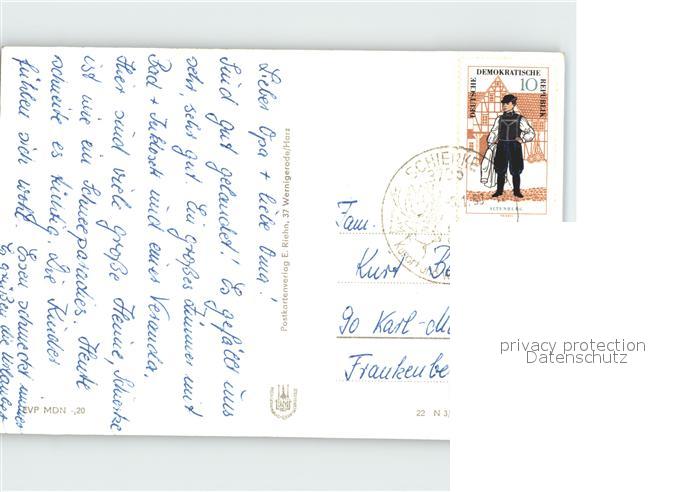 Lieber Opa + liebe Oma!
Sind gut gelandet! Es gefällt uns
sehr, sehr gut. Ein großes Zimmer mit
Bad + Inklosett und einer Veranda.
Hier sind viele große Heime, Schierke
ist wie ein Schneeparadies. Heute
schneite es tüchtig. Die Kinder
fühlen sich wohl. Essen schmeckt immer
Es grüßen die Urlauber
Postkartenverlag E. Riehn, 37 Wernigerode/Harz
EVP MDN -,20
22 N 3/
DEUTSCHE DEMOKRATISCHE REPUBLIK
10
ALTENBURG
SCHIERKE
3705
KURORT
Fam.
Kurt Be
90 Karl-M
Frankenbe
privacy protection
Datenschutz